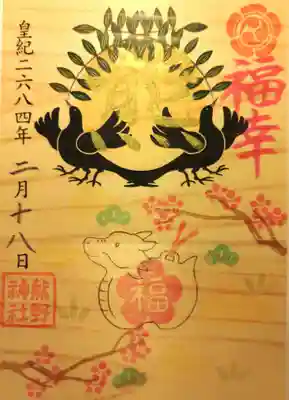 福幸
皇紀二六八四年 二月十八日
福
熊野
神社